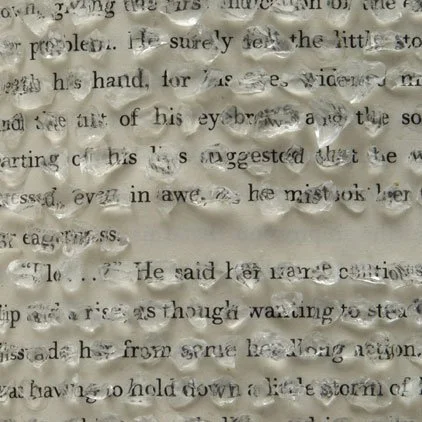 own, giving the first indication of the
problem. He surely felt the little
with his hand, for his eyes widened
and the tilt of his eyebrows and the
arting of his lips suggested that he
ressed, even in awe, as he mistook her
eagerness.
He said her name
lip and a rise, as though wanting to
dissuade her from some headlong action.
was having to hold down a little storm of